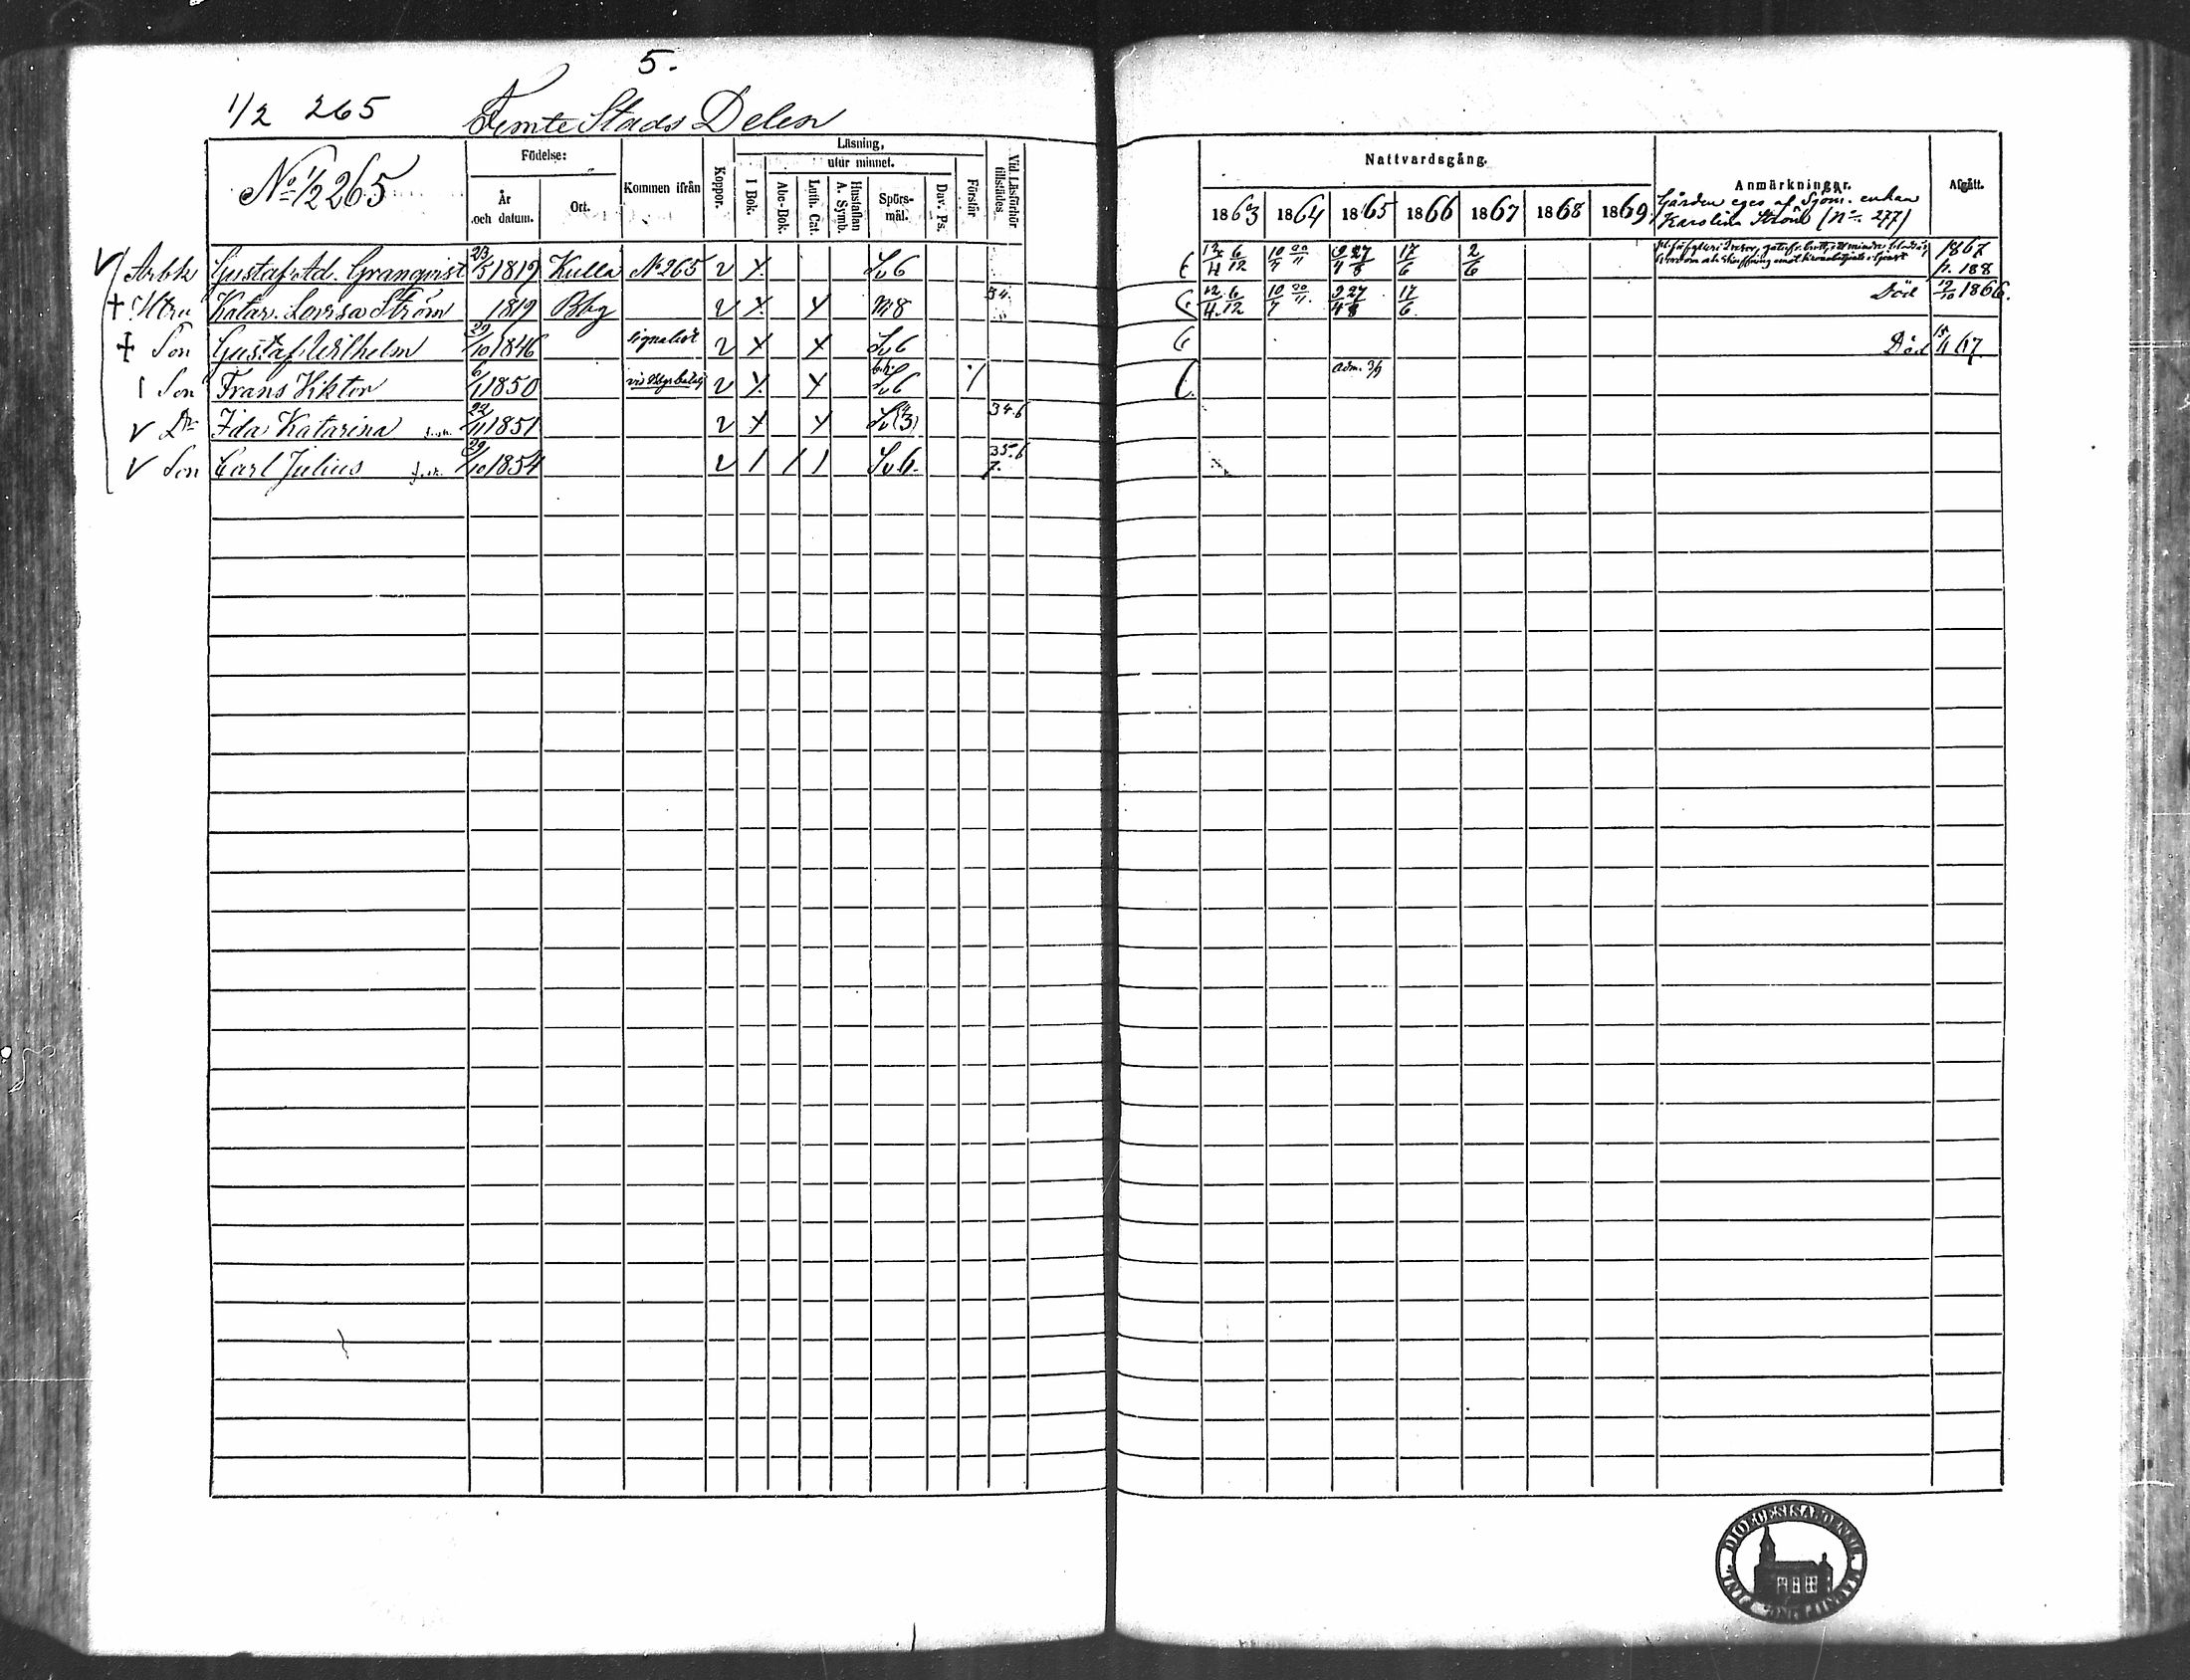 5.
1/2 265 Femte Stads Delen
No 1/2 265
Födelse:
År och datum.
Ort.
Kommen ifrån
Koppor.
Läsning,
I Bok.
utur minnet.
Abc-Bok.
Luth. Cat.
Hustaflan A. Symb.
Spörsmål.
Dav. Ps.
Förstår
Vid Läsförhör tillstädes.
Nattvardsgång.
1863 1864 1865 1866 1867 1868 1869
Anmärkningar.
Afgått.
Gården eges af Sjöm. enkan
Karolina Ström (No 277)
Arbk Gustaf Ad. Granqvist 23/5 1819 Kulla No 265 v X Sv 6 12/4 6/12 10/7 20/11 9/4 27/8 17/6 2/6 1867 p. 188
Hru Katar. Lovisa Ström 1819 Bbg v X X m 8 34. 12/4 6/12 10/7 20/11 9/4 27/8 17/6 Död 12/10 1866.
Son Gustaf Wilhelm 29/10 1846 signalist v X X Sv 6 Död 15/11 67.
Son Frans Viktor 6/11 1850 vid Bbgs batalj v X X Sv 6 adm. 3/9
Dr Ida Katarina 22/11 1851 v X X Sv (3) 34.6
Son Carl Julius 29/10 1854 v / / / Sv 6. 35.6 7.